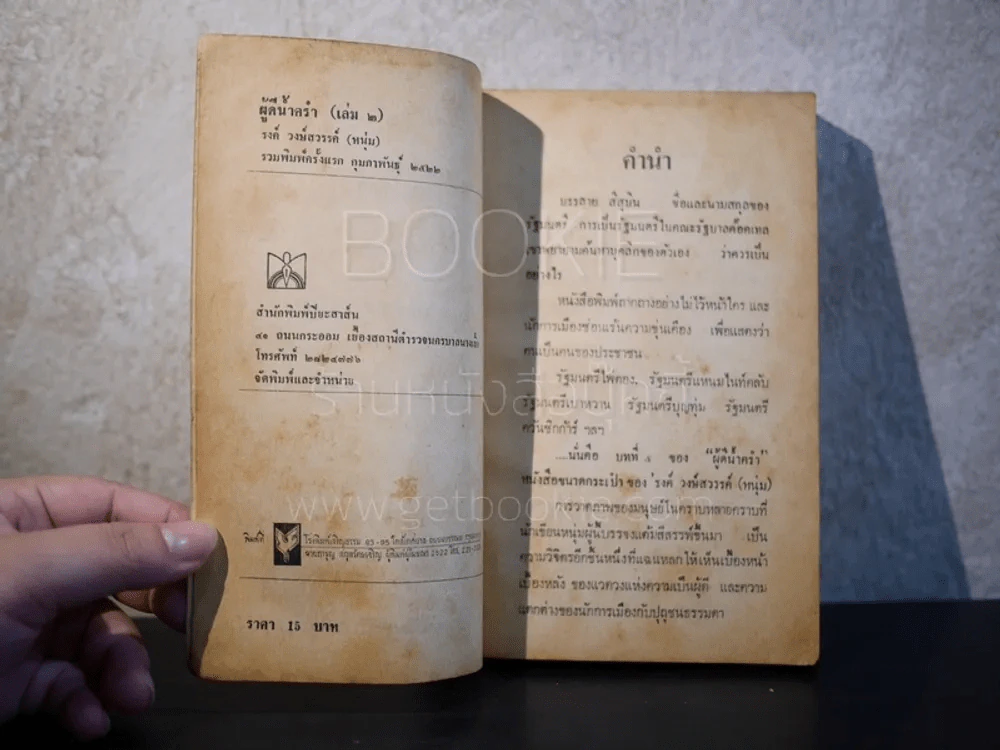 ผู้ดีน้ำครำ (เล่ม ๒)
รงค์ วงษ์สวรรค์ (หนุ่ม)
รวมพิมพ์ครั้งแรก กุมภาพันธุ์ ๒๕๒๒
สำนักพิมพ์ปิยะสาส์น
๔๑ ถนนกระออม เยื้องสถานีตำรวจนครบาลนางเลิ้ง
โทรศัพท์ ๒๘๒๔๗๗๖
จัดพิมพ์และจำหน่าย
พิมพ์ที่
โรงพิมพ์เจริญธรรม
ราคา 15 บาท
คำนำ
บรรลาย สิสุบิน ชื่อและนามสกุลของ
รัฐมนตรี การเป็นรัฐมนตรีในคณะรัฐบาลค๊อคเทล
เขาพยายามค้นหาบุคลิกของตัวเอง ว่าควรเป็น
อย่างไร
หนังสือพิมพ์ถากถางอย่างไม่ไว้หน้าใคร และ
นักการเมืองซ่อนเร้นความขุ่นเคือง เพื่อแสดงว่า
ตนเป็นคนของประชาชน
รัฐมนตรีไฝ่คอง, รัฐมนตรีแหนมไนท์คลับ
รัฐมนตรีเบาหวาน รัฐมนตรีบุญทุ่ม รัฐมนตรี
ควันซิการ์ ฯลฯ
....นั่นคือ บทที่ ๕ ของ "ผู้ดีน้ำครำ"
หนังสือขนาดกระเป๋า ของ 'รงค์ วงษ์สวรรค์ (หนุ่ม)
การวาดภาพของมนุษย์ในคราบหลายคราบที่
นักเขียนหนุ่มผู้นี้บรรจงแต้มสีสรรพ์ขึ้นมา เป็น
ความวิจิตรอีกชิ้นหนึ่งที่แฉนหลกให้เห็นเบื้องหน้า
เบื้องหลัง ของแวดวงแห่งความเป็นผู้ดี และความ
แตกต่างของนักการเมืองกับปุถุชนธรรมดา
BOOKIE
ร้านหนังสือบุ๊คกี้
www.getbookie.com